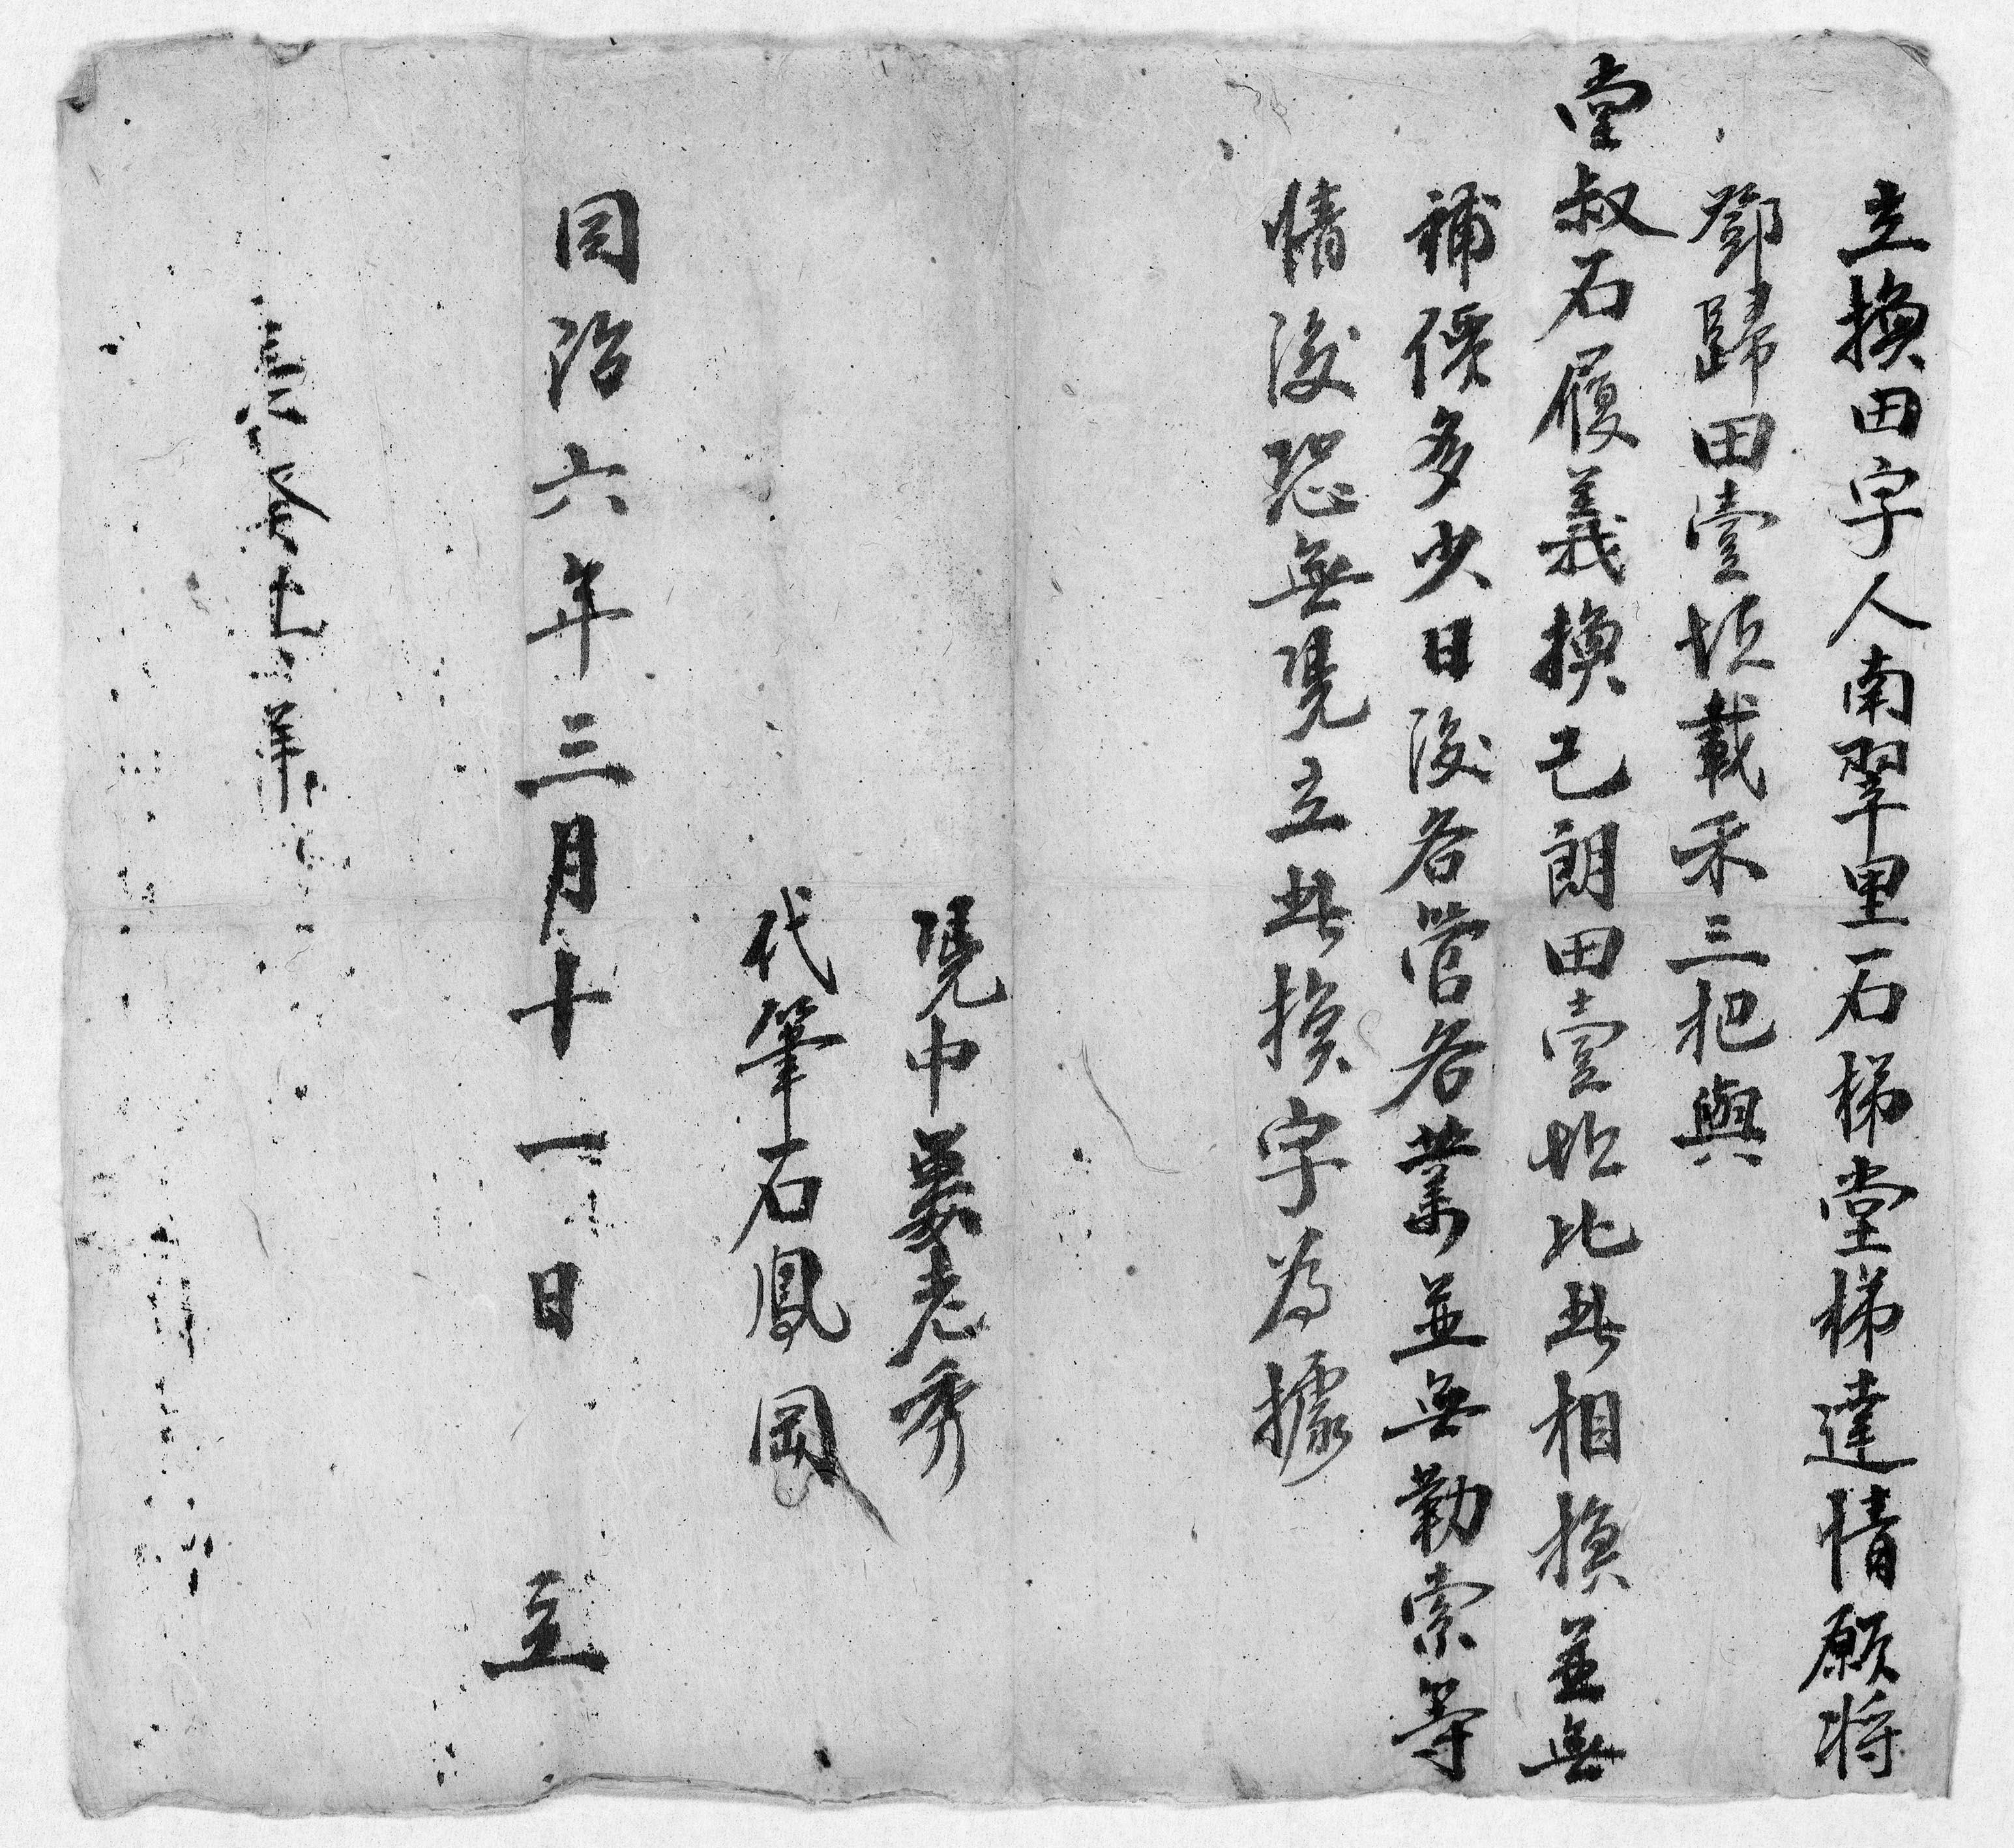 立換田字人南翠里石梯堂梯達情願將
鄧歸田壹坵載禾三把與
堂叔石履義換己朗田壹坵比此相換並無
補係多少日後各管各業並無勒索等
情後恐無凴立此換字為據
凴中姜老秀
代筆石鳳岡
同治六年三月十一日 立